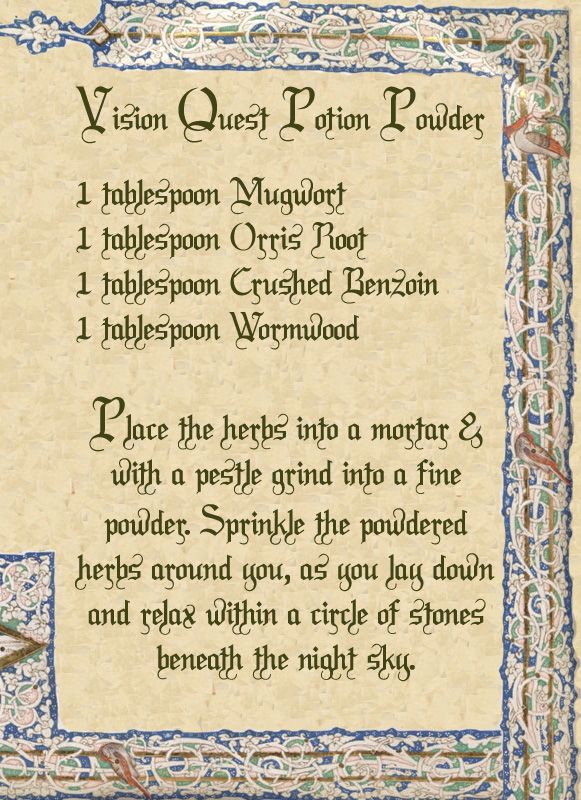 Vision Quest Potion Powder
1 tablespoon Mugwort
1 tablespoon Orris Root
1 tablespoon Crushed Benzoin
1 tablespoon Wormwood
Place the herbs into a mortar &
with a pestle grind into a fine
powder. Sprinkle the powdered
herbs around you, as you lay down
and relax within a circle of stones
beneath the night sky.